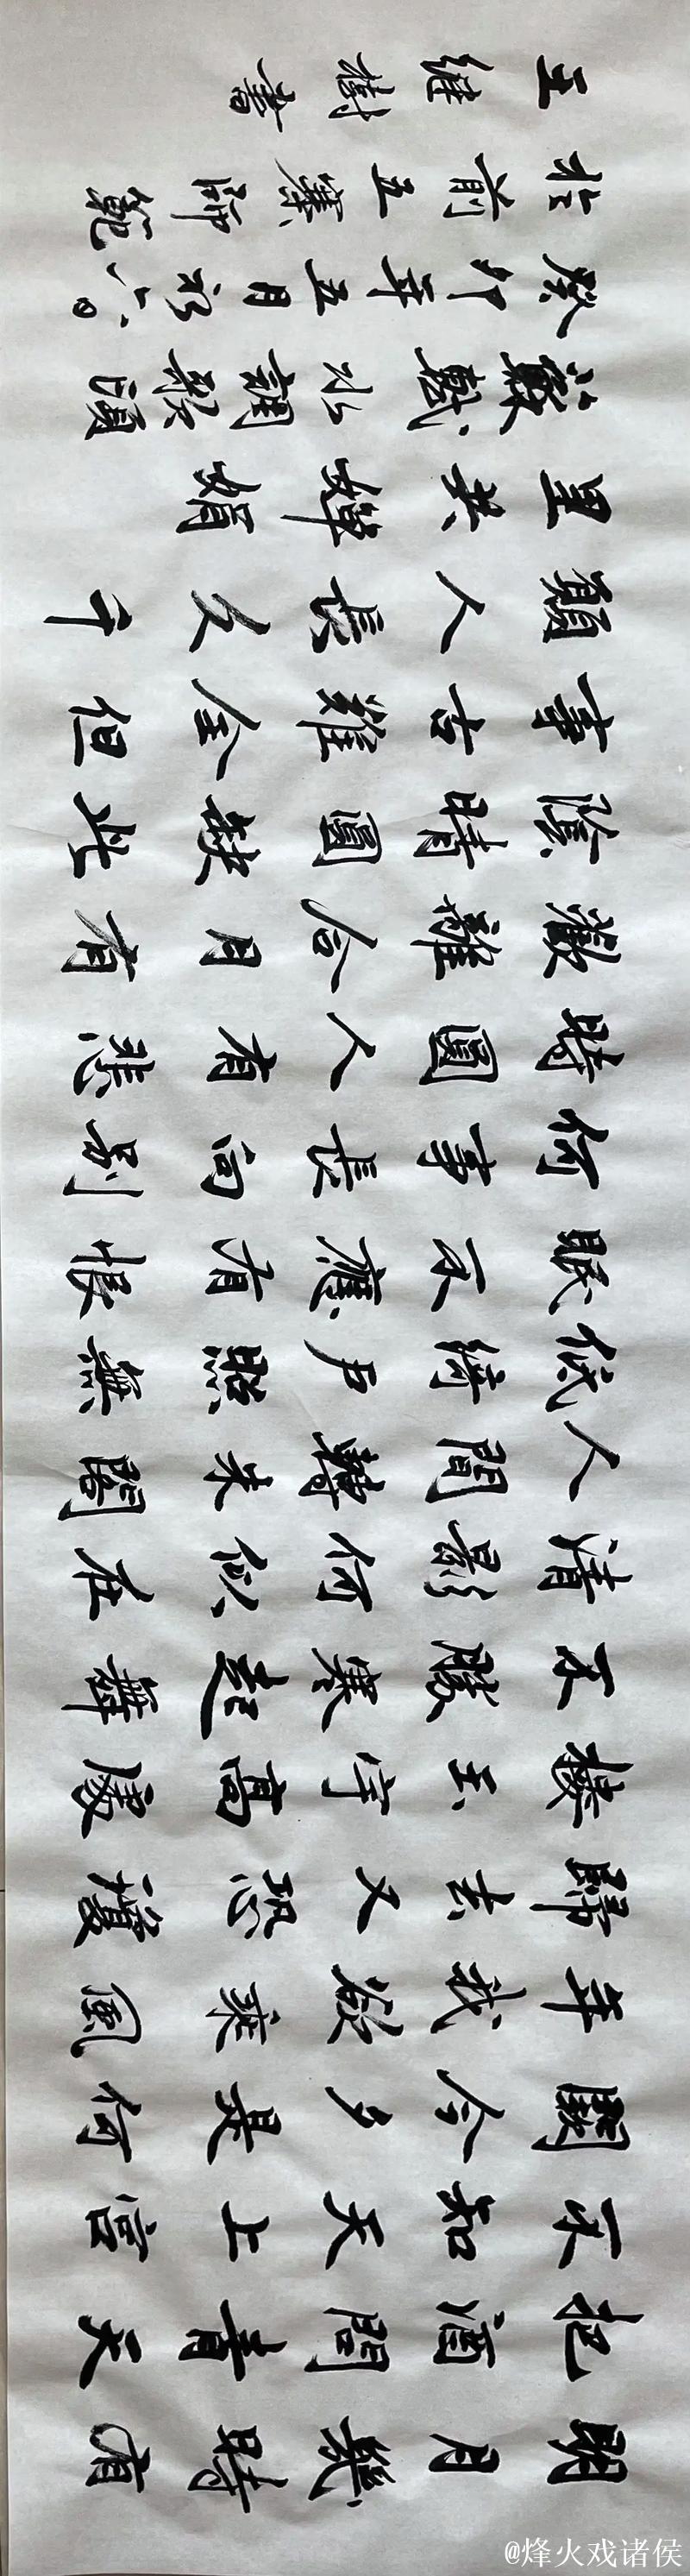 明月幾時有
把酒問青天
不知天上宮
闕今夕是何
年我欲乘風
歸去又恐瓊
樓玉宇高處
不勝寒起舞
清影何似在
人間轉朱閣
低綺戶照無
眠不應有恨
何事長向別
時圓人有悲
歡離合月有
陰晴圓缺此
事古難全但
願人長久千
里共嬋娟
蘇軾水調歌頭
癸卯年五月初六。
於前五寨師範
王继樹書
@烽火戏诸侯